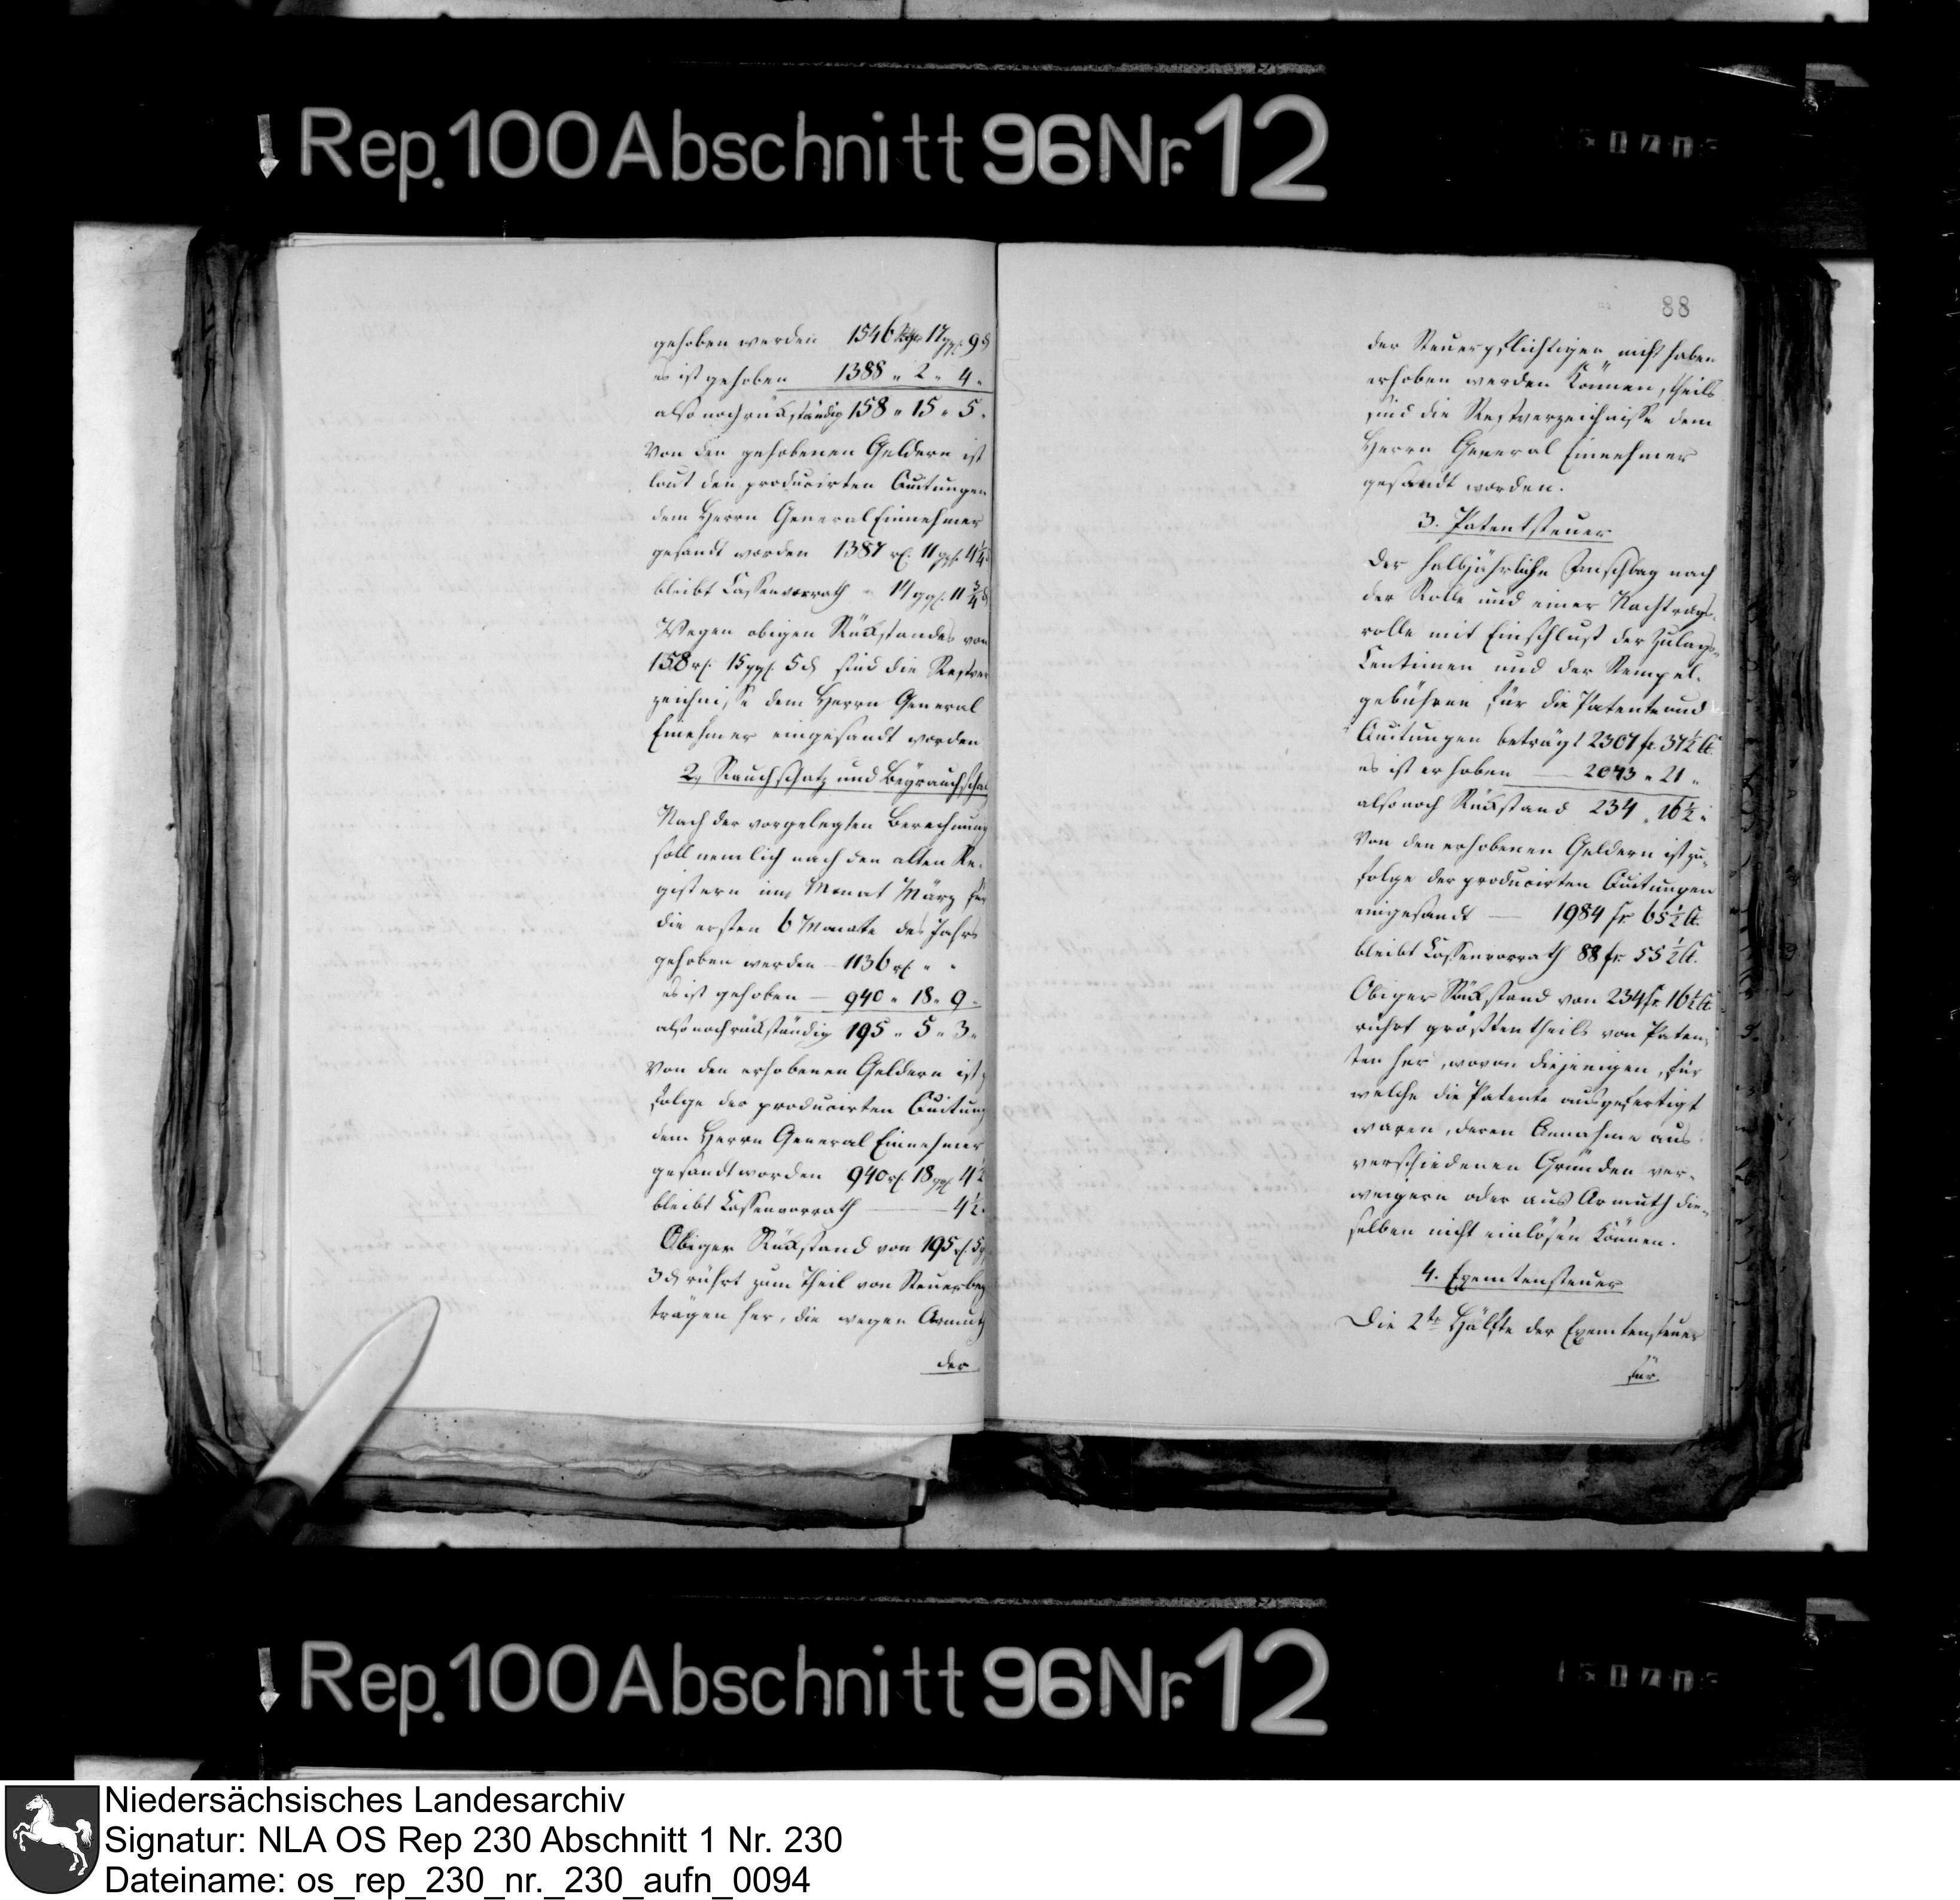 Rep. 100 Abschnitt 96 Nr. 12
gehoben werden 1546 17 ggl. 9 d
es ist gehoben 1388 " 2 " 4 "
also noch rückständig 158 " 15 " 5 "
Von den gehobenen Geldern ist
laut den producirten Quitungen
dem Herrn General Einnehmer
gesandt worden 1387 rl. 11 ggl. 4¼
bleibt Cassenvorrath " 14 ggl. 11¾ d
Wegen obigen Rückstandes von
158 rl. 15 ggl. 5 d sind die Restver
zeichnisse dem Herrn General
Einehmer eingesandt worden
2, Rauchschatz und Beyrauchschatz
Nach der vorgelegten Berechnung
soll nemlich nach den alten Re-
gistern im Monat März für
die ersten 6 Monate des Jahrs
gehoben werden — 1136 rl. " "
es ist gehoben — 940 " 18 " 9 "
also noch rückständig 195 " 5 " 3 "
Von den erhobenen Geldern ist
folge der producirten Quitung
dem Herrn General Einnehmer
gesandt worden 940 rl. 18 ggl. 4½
bleibt Cassenvorrath — 4½
Obiger Rückstand von 195 rl. 5
3 d rührt zum Theil von Steuerbey
trägen her, die wegen Armuth
der
88
der Steuerpflichtigen nicht haben
erhoben werden können, theils
sind die Restverzeichnisse dem
Herrn General Einnehmer
gesandt worden.
3. Patentsteuer
Der halbjährliche Anschlag nach
der Rolle und einer Nachtrags-
rolle mit Einschlust der Zulags-
Centimen und der Stempel-
gebühren für die Patente und
Quitungen beträgt 2307 fr. 37½ Ct.
es ist erhoben — 2073 " 21 "
also noch Rückstand 234 " 16½ "
Von den erhobenen Geldern ist zu-
folge der producirten Quitungen
eingesandt — 1984 fr. 65½ Ct.
bleibt Cassenvorrath 88 fr. 55½ Ct.
Obiger Rückstand von 234 fr. 16½ Ct.
rührt größtentheils von Paten-
ten her, wovon diejenigen, für
welche die Patente ausgefertigt
waren, deren Annahme aus
verschiedenen Gründen ver-
weigern oder aus Armuth die-
selben nicht einlösen können.
4. Exemtensteuer
Die 2te Hälfte der Exemtensteuer
für
Rep. 100 Abschnitt 96 Nr. 12
Niedersächsisches Landesarchiv
Signatur: NLA OS Rep 230 Abschnitt 1 Nr. 230
Dateiname: os_rep_230_nr._230_aufn_0094